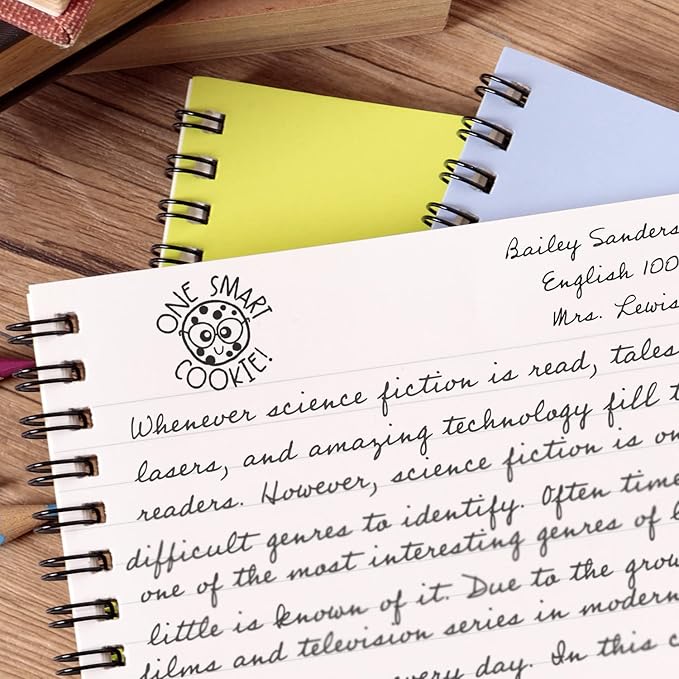 ONE SMART
COOKIE!
Bailey Sanders
English 100
Mrs. Lewis
Whenever science fiction is read, tales
lasers, and amazing technology fill
readers. However, science fiction is
difficult genres to identify. Often time
one of the most interesting genres of
little is known of it. Due to the grow
films and television series in modern
every day. In this